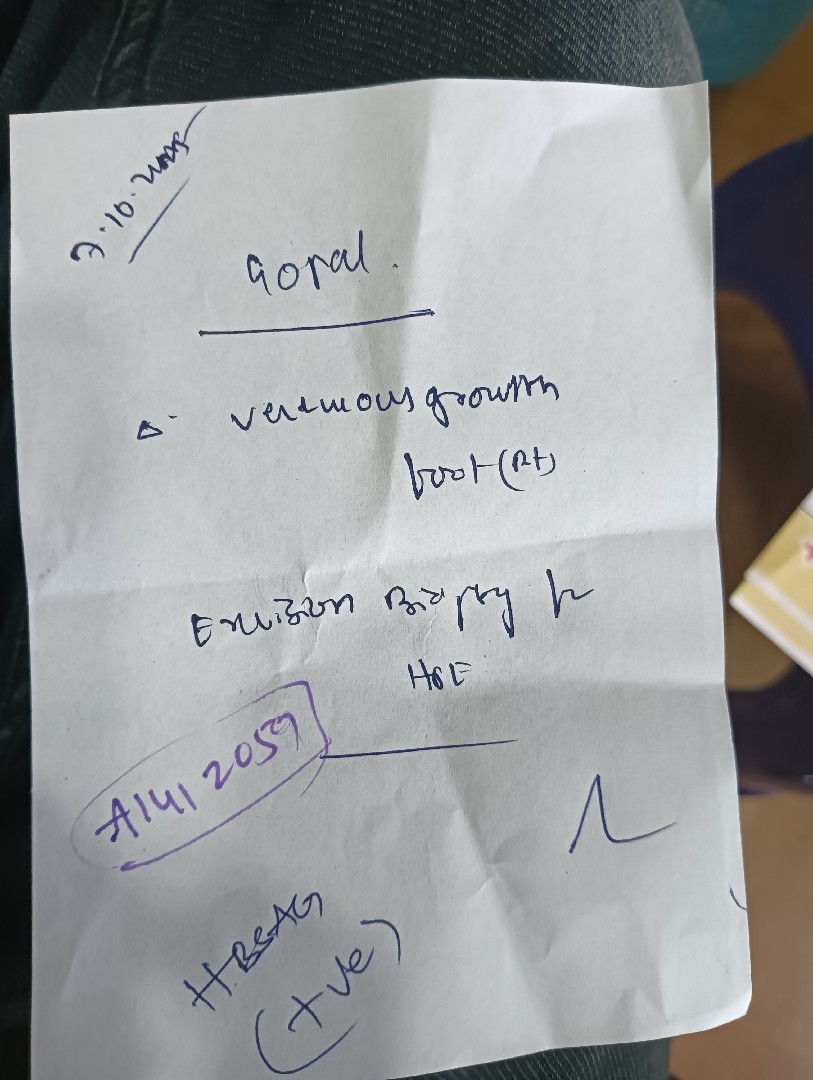 7.10.2025
Gopal.
Δ- verrucous growth
foot (Rt)
Excision Biopsy for
HPE
A1412059
HBSAG
(+ve)